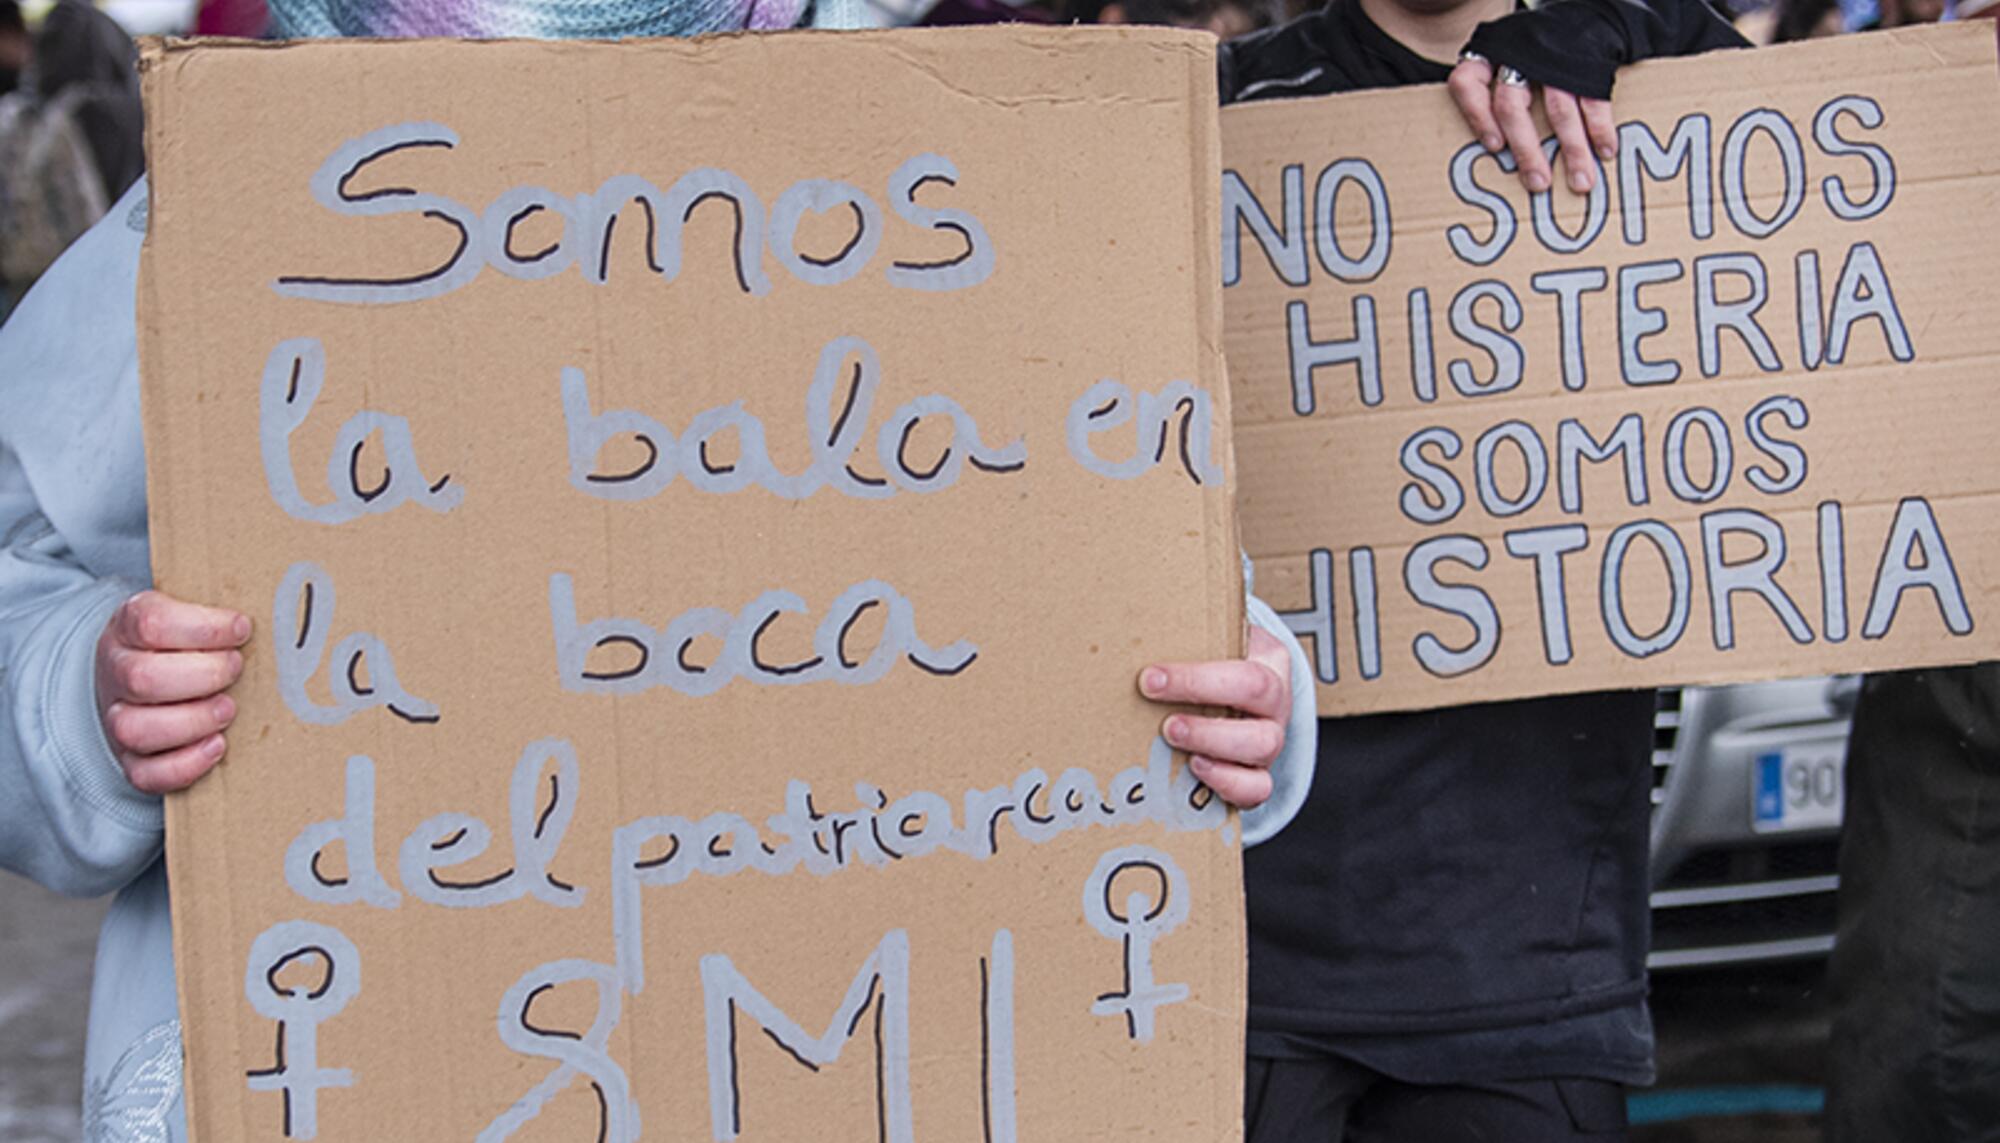 Somos
la bala en
la boca
del patriarcado.
8M
NO SOMOS
HISTERIA
SOMOS
HISTORIA
90